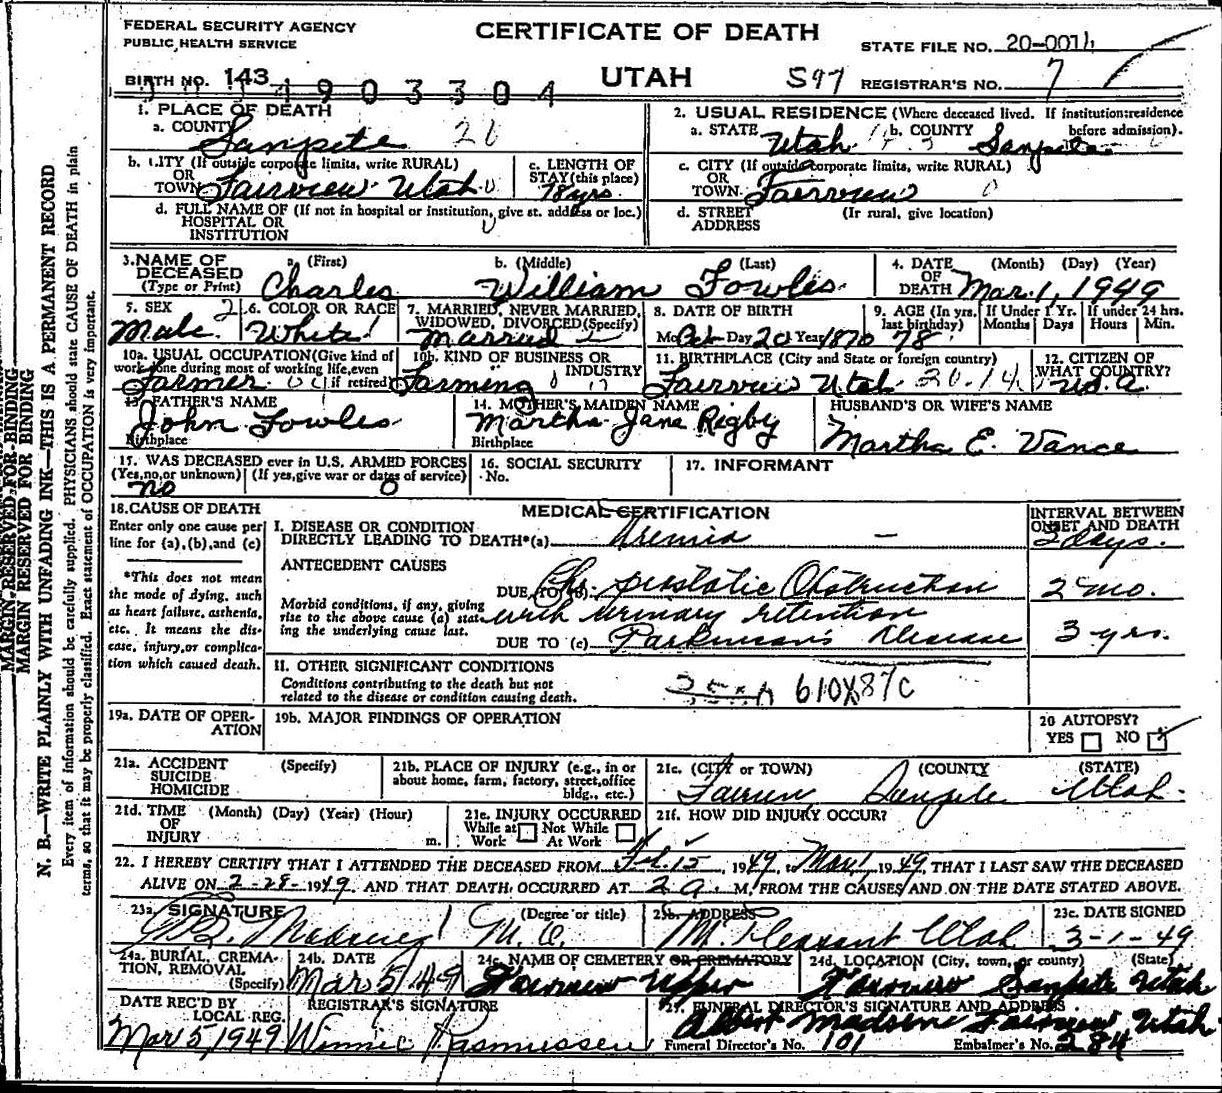 FEDERAL SECURITY AGENCY
PUBLIC HEALTH SERVICE
CERTIFICATE OF DEATH
STATE FILE NO. 20-0014
BIRTH NO. 143
UTAH
597
REGISTRAR'S NO. 7
1903304
1. PLACE OF DEATH
a. COUNTY Sanpete 26
2. USUAL RESIDENCE (Where deceased lived. If institution:residence before admission).
a. STATE Utah b. COUNTY Sanpete
b. CITY (If outside corporate limits, write RURAL)
OR
TOWN Fairview Utah
c. LENGTH OF
STAY (this place)
78 yrs
c. CITY (If outside corporate limits, write RURAL)
OR
TOWN Fairview
d. FULL NAME OF (If not in hospital or institution, give st. address or loc.)
HOSPITAL OR
INSTITUTION
d. STREET (If rural, give location)
ADDRESS
3. NAME OF DECEASED (Type or Print)
a. (First) b. (Middle) (Last)
Charles William Fowles
4. DATE OF DEATH (Month) (Day) (Year)
Mar. 1, 1949
5. SEX 2
Male
6. COLOR OR RACE
White
7. MARRIED, NEVER MARRIED,
WIDOWED, DIVORCED (Specify)
Married
8. DATE OF BIRTH
Mo Oct Day 20 Year 1870
9. AGE (In yrs. last birthday)
78
If Under 1 Yr. Months Days
If under 24 hrs. Hours Min.
10a. USUAL OCCUPATION (Give kind of
work done during most of working life, even
if retired)
Farmer
10b. KIND OF BUSINESS OR
INDUSTRY
Farming
11. BIRTHPLACE (City and State or foreign country)
Fairview Utah
12. CITIZEN OF
WHAT COUNTRY?
U.S.A.
13. FATHER'S NAME
John Fowles
Birthplace
14. MOTHER'S MAIDEN NAME
Martha Jane Rigby
Birthplace
HUSBAND'S OR WIFE'S NAME
Martha E. Vance
15. WAS DECEASED ever in U.S. ARMED FORCES
(Yes, no, or unknown) (If yes, give war or dates of service)
no 0
16. SOCIAL SECURITY
No.
17. INFORMANT
18. CAUSE OF DEATH
Enter only one cause per
line for (a), (b), and (c)
*This does not mean
the mode of dying, such
as heart failure, asthenia,
etc. It means the dis-
ease, injury, or complica-
tion which caused death.
MEDICAL CERTIFICATION
INTERVAL BETWEEN
ONSET AND DEATH
I. DISEASE OR CONDITION
DIRECTLY LEADING TO DEATH*(a) Uremia
2 days.
ANTECEDENT CAUSES
DUE TO (b) Chr. prostatic Obstruction
with urinary retention
2 mo.
Morbid conditions, if any, giving
rise to the above cause (a) stat-
ing the underlying cause last.
DUE TO (c) Parkinson's Disease
3 yrs.
II. OTHER SIGNIFICANT CONDITIONS
Conditions contributing to the death but not
related to the disease or condition causing death.
610X87C
19a. DATE OF OPER-
ATION
19b. MAJOR FINDINGS OF OPERATION
20 AUTOPSY?
YES NO
21a. ACCIDENT (Specify)
SUICIDE
HOMICIDE
21b. PLACE OF INJURY (e.g., in or
about home, farm, factory, street, office
bldg., etc.)
21c. (CITY or TOWN) (COUNTY) (STATE)
Fairview Sanpete Utah
21d. TIME (Month) (Day) (Year) (Hour)
OF
INJURY m.
21e. INJURY OCCURRED
While at Work Not While At Work
21f. HOW DID INJURY OCCUR?
22. I HEREBY CERTIFY THAT I ATTENDED THE DECEASED FROM Feb. 15, 1949, to Mar 1 1949, THAT I LAST SAW THE DECEASED
ALIVE ON 2-28-1949, AND THAT DEATH OCCURRED AT 2 a. M. FROM THE CAUSES AND ON THE DATE STATED ABOVE.
23a. SIGNATURE (Degree or title)
Madsen M.D.
23b. ADDRESS
Mt. Pleasant Utah
23c. DATE SIGNED
3-1-49
24a. BURIAL, CREMA-
TION, REMOVAL
(Specify)
24b. DATE
Mar 5/49
24c. NAME OF CEMETERY OR CREMATORY
Fairview Upper
24d. LOCATION (City, town, or county) (State)
Fairview Sanpete Utah
DATE REC'D BY
LOCAL REG.
Mar 5, 1949
REGISTRAR'S SIGNATURE
Winnie Rasmussen
25. FUNERAL DIRECTOR'S SIGNATURE AND ADDRESS
Albert Madsen Fairview, Utah
Funeral Director's No. 101 Embalmer's No. 284
MARGIN RESERVED FOR BINDING
MARGIN RESERVED FOR BINDING
N. B.—WRITE PLAINLY WITH UNFADING INK—THIS IS A PERMANENT RECORD
Every item of information should be carefully supplied. PHYSICIANS should state CAUSE OF DEATH in plain
terms, so that it may be properly classified. Exact statement of OCCUPATION is very important.